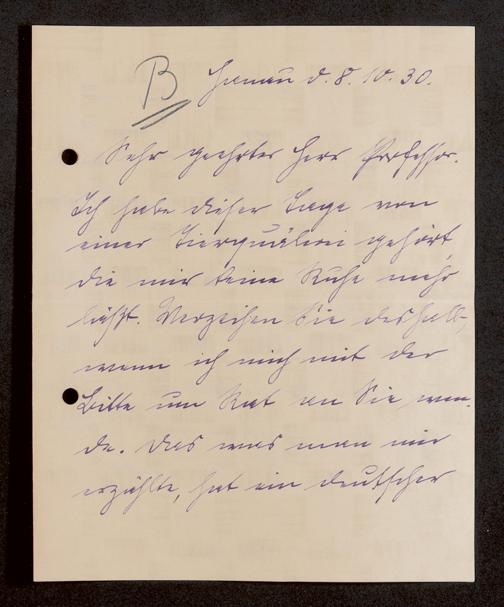 B Hanau d. 8. 10. 30.
Sehr geehrter Herr Professor.
Ich habe dieser Tage von
einer Tierquälerei gehört,
die mir keine Ruhe mehr
läßt. Verzeihen Sie deshalb
wenn ich mich mit der
Bitte um Rat an Sie wen-
de. Das was man mir
erzählte, hat ein deutscher